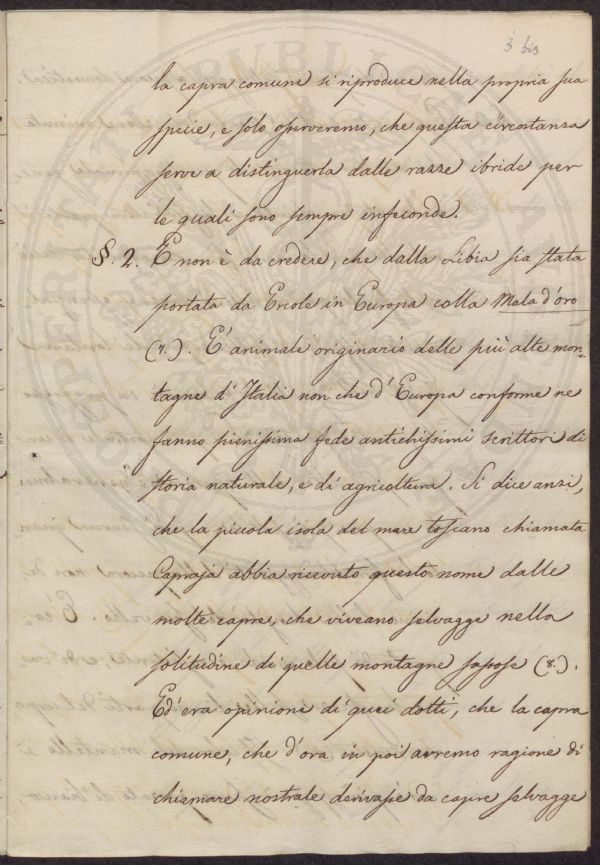 3 bis
la capra comune si riproduce nella propria sua
specie, e solo osserveremo, che questa circostanza
serve a distinguerla dalle razze ibride per
le quali sono sempre infeconde.
§. 2. E non è da credere, che dalla Libia sia stata
portata da Ercole in Europa colla Mala d'oro
(7.). E' animale originario delle più alte mon-
tagne d'Italia non che d'Europa conforme ne
fanno pienissima fede antichissimi scrittori di
storia naturale, e di agricoltura. Si dice anzi,
che la piccola isola del mare toscano chiamata
Capraja abbia ricevuto questo nome dalle
molte capre, che viveano selvagge nella
solitudine di quelle montagne sassose (8.).
Ed'era opinione di quei dotti, che la capra
comune, che d'ora in poi avremo ragione di
chiamare nostrale derivasse da capre selvagge